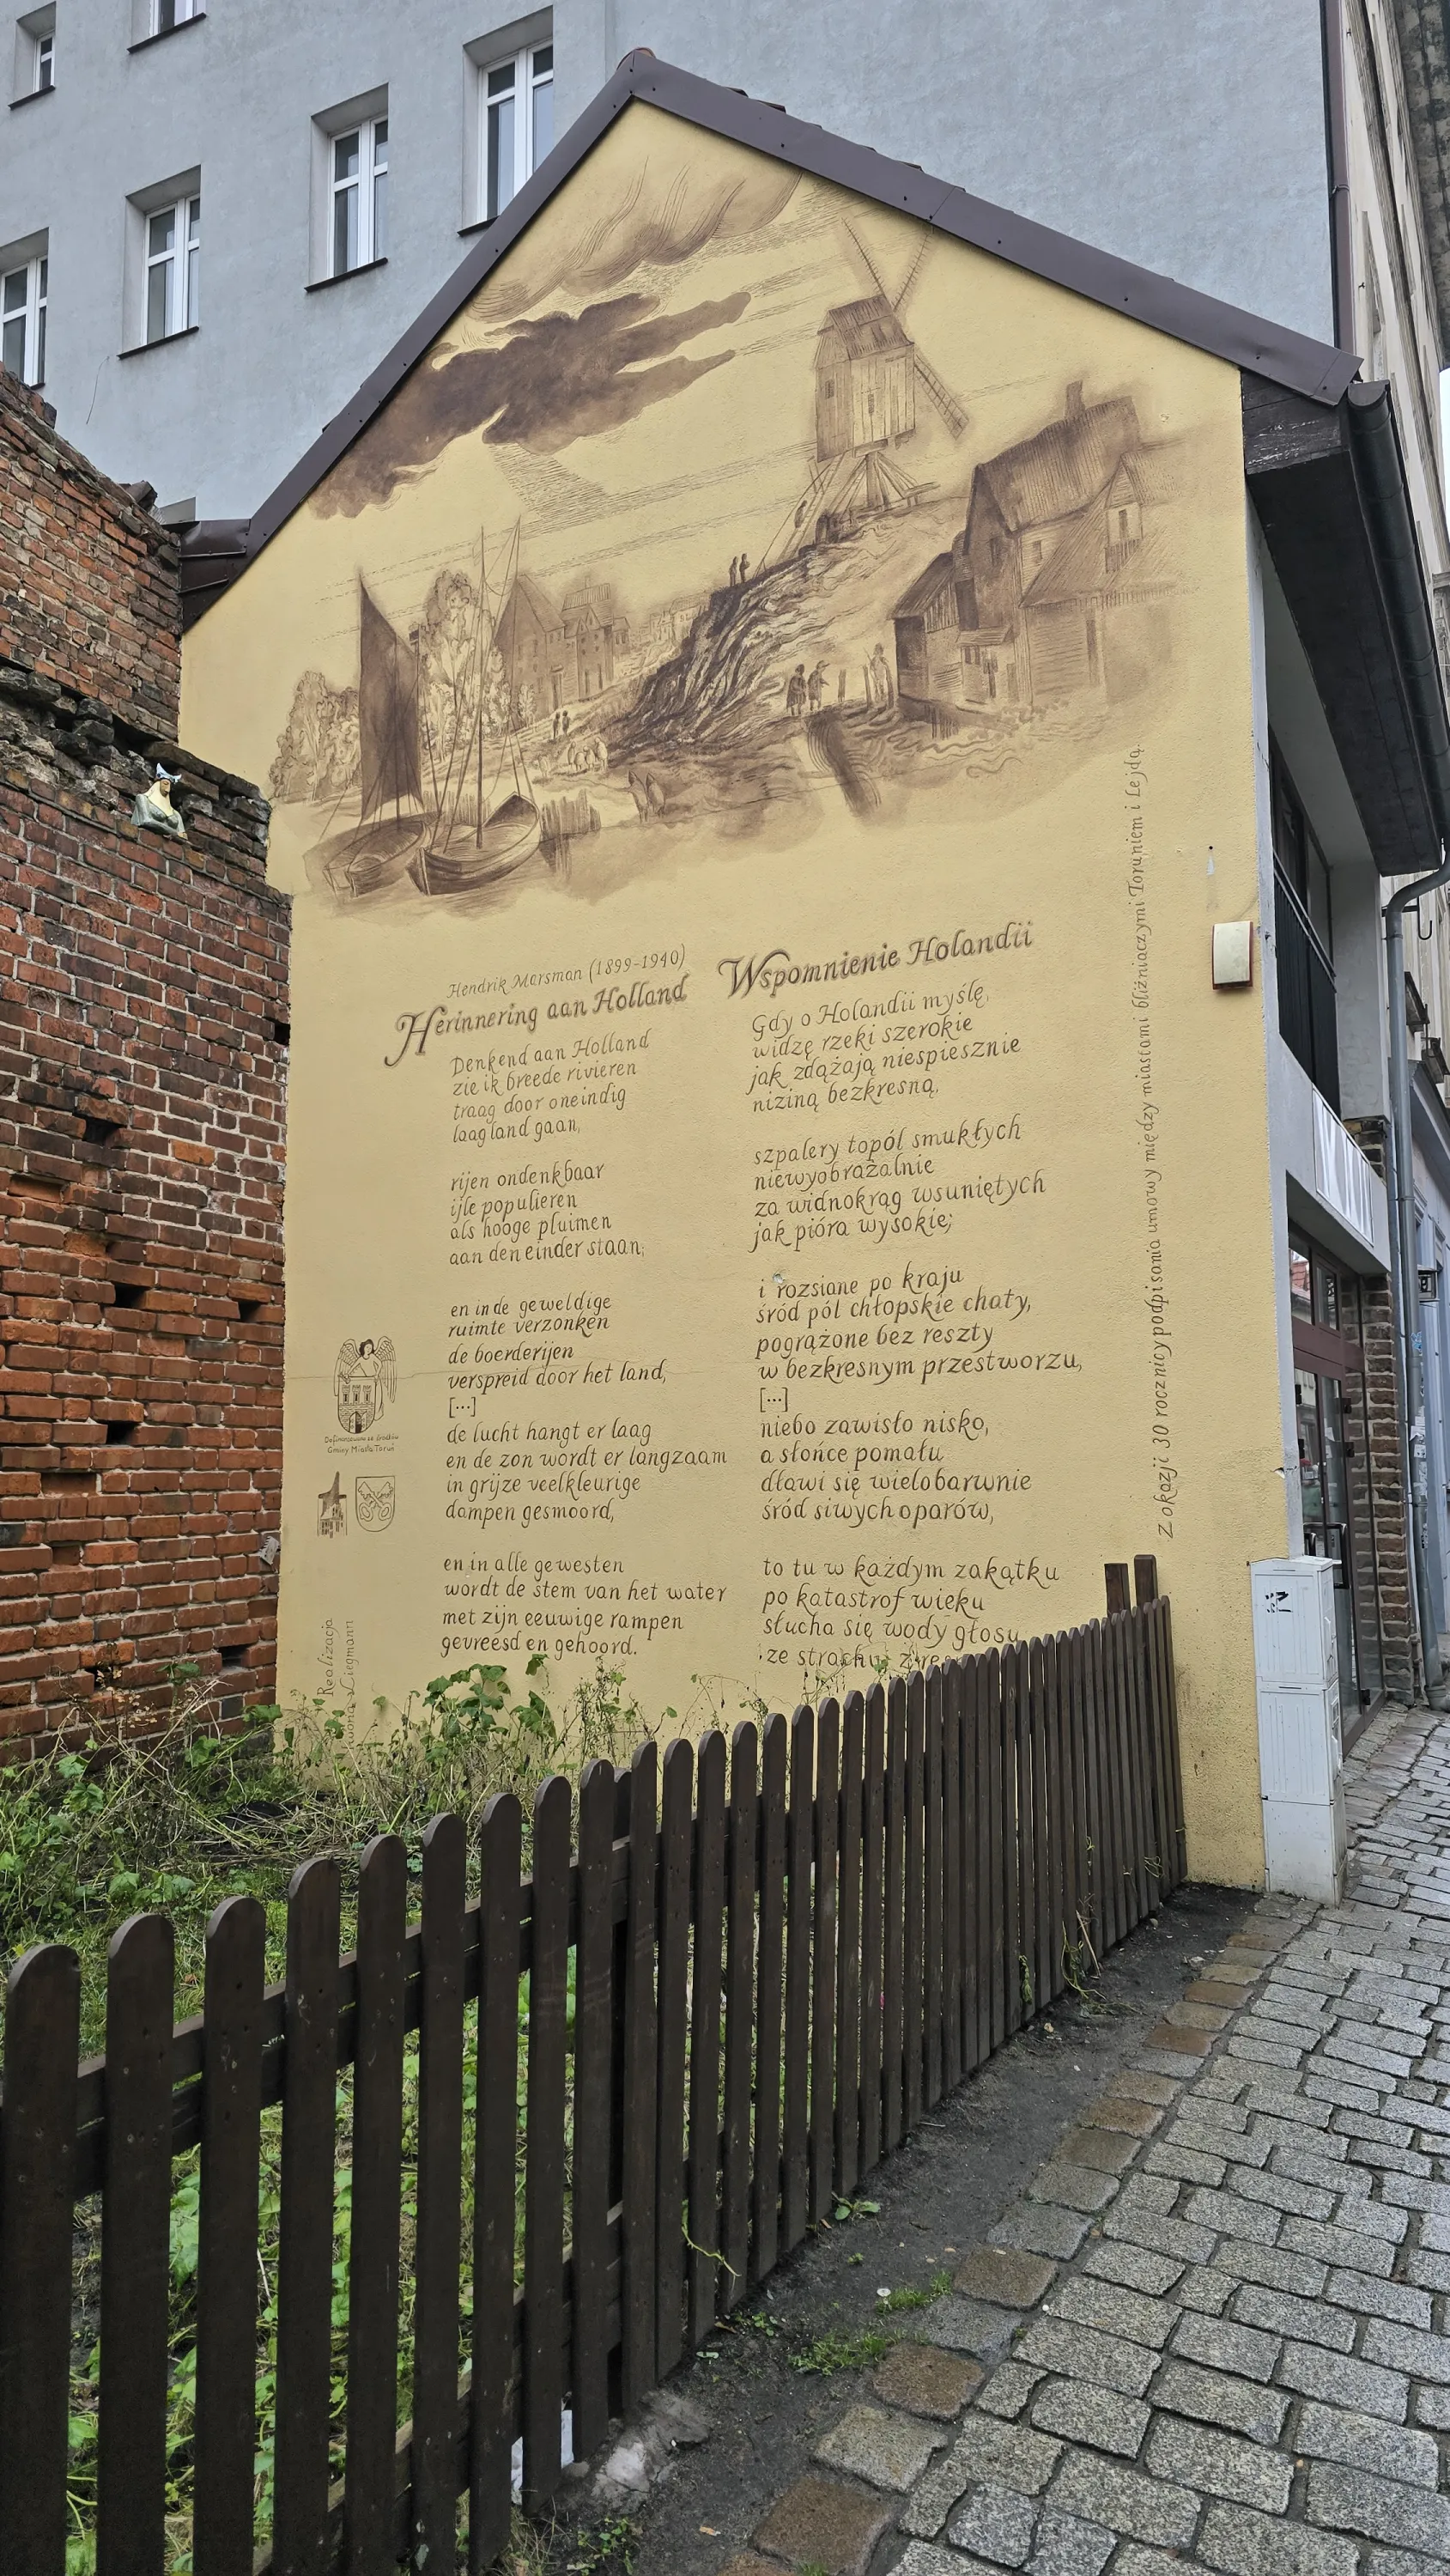 Hendrik Marsman (1899-1940)
Herinnering aan Holland
Denkend aan Holland
zie ik breede rivieren
traag door oneindig
laagland gaan,
rijen ondenkbaar
ijle populieren
als hooge pluimen
aan den einder staan;
en in de geweldige
ruimte verzonken
de boerderijen
verspreid door het land,
[...]
de lucht hangt er laag
en de zon wordt er langzaam
in grijze veelkleurige
dampen gesmoord,
en in alle gewesten
wordt de stem van het water
met zijn eeuwige rampen
gevreesd en gehoord.
Wspomnienie Holandii
Gdy o Holandii myślę,
widzę rzeki szerokie
jak zdążają niespiesznie
niziną bezkresną,
szpalery topól smukłych
niewyobrażalnie
za widnokrąg wsuniętych
jak pióra wysokie;
i rozsiane po kraju
śród pól chłopskie chaty,
pogrążone bez reszty
w bezkresnym przestworzu,
[...]
niebo zawisło nisko,
a słońce pomału
dławi się wielobarwnie
śród siwych oparów,
to tu w każdym zakątku
po katastrof wieku
słucha się wody głosu
ze strachu i z
Z okazji 30 rocznicy podpisania umowy między miastami bliźniaczymi Toruniem i Lejdą.
Dofinansowano ze środków
Gminy Miasta Toruń
Realizacja
Iwona Liegmann